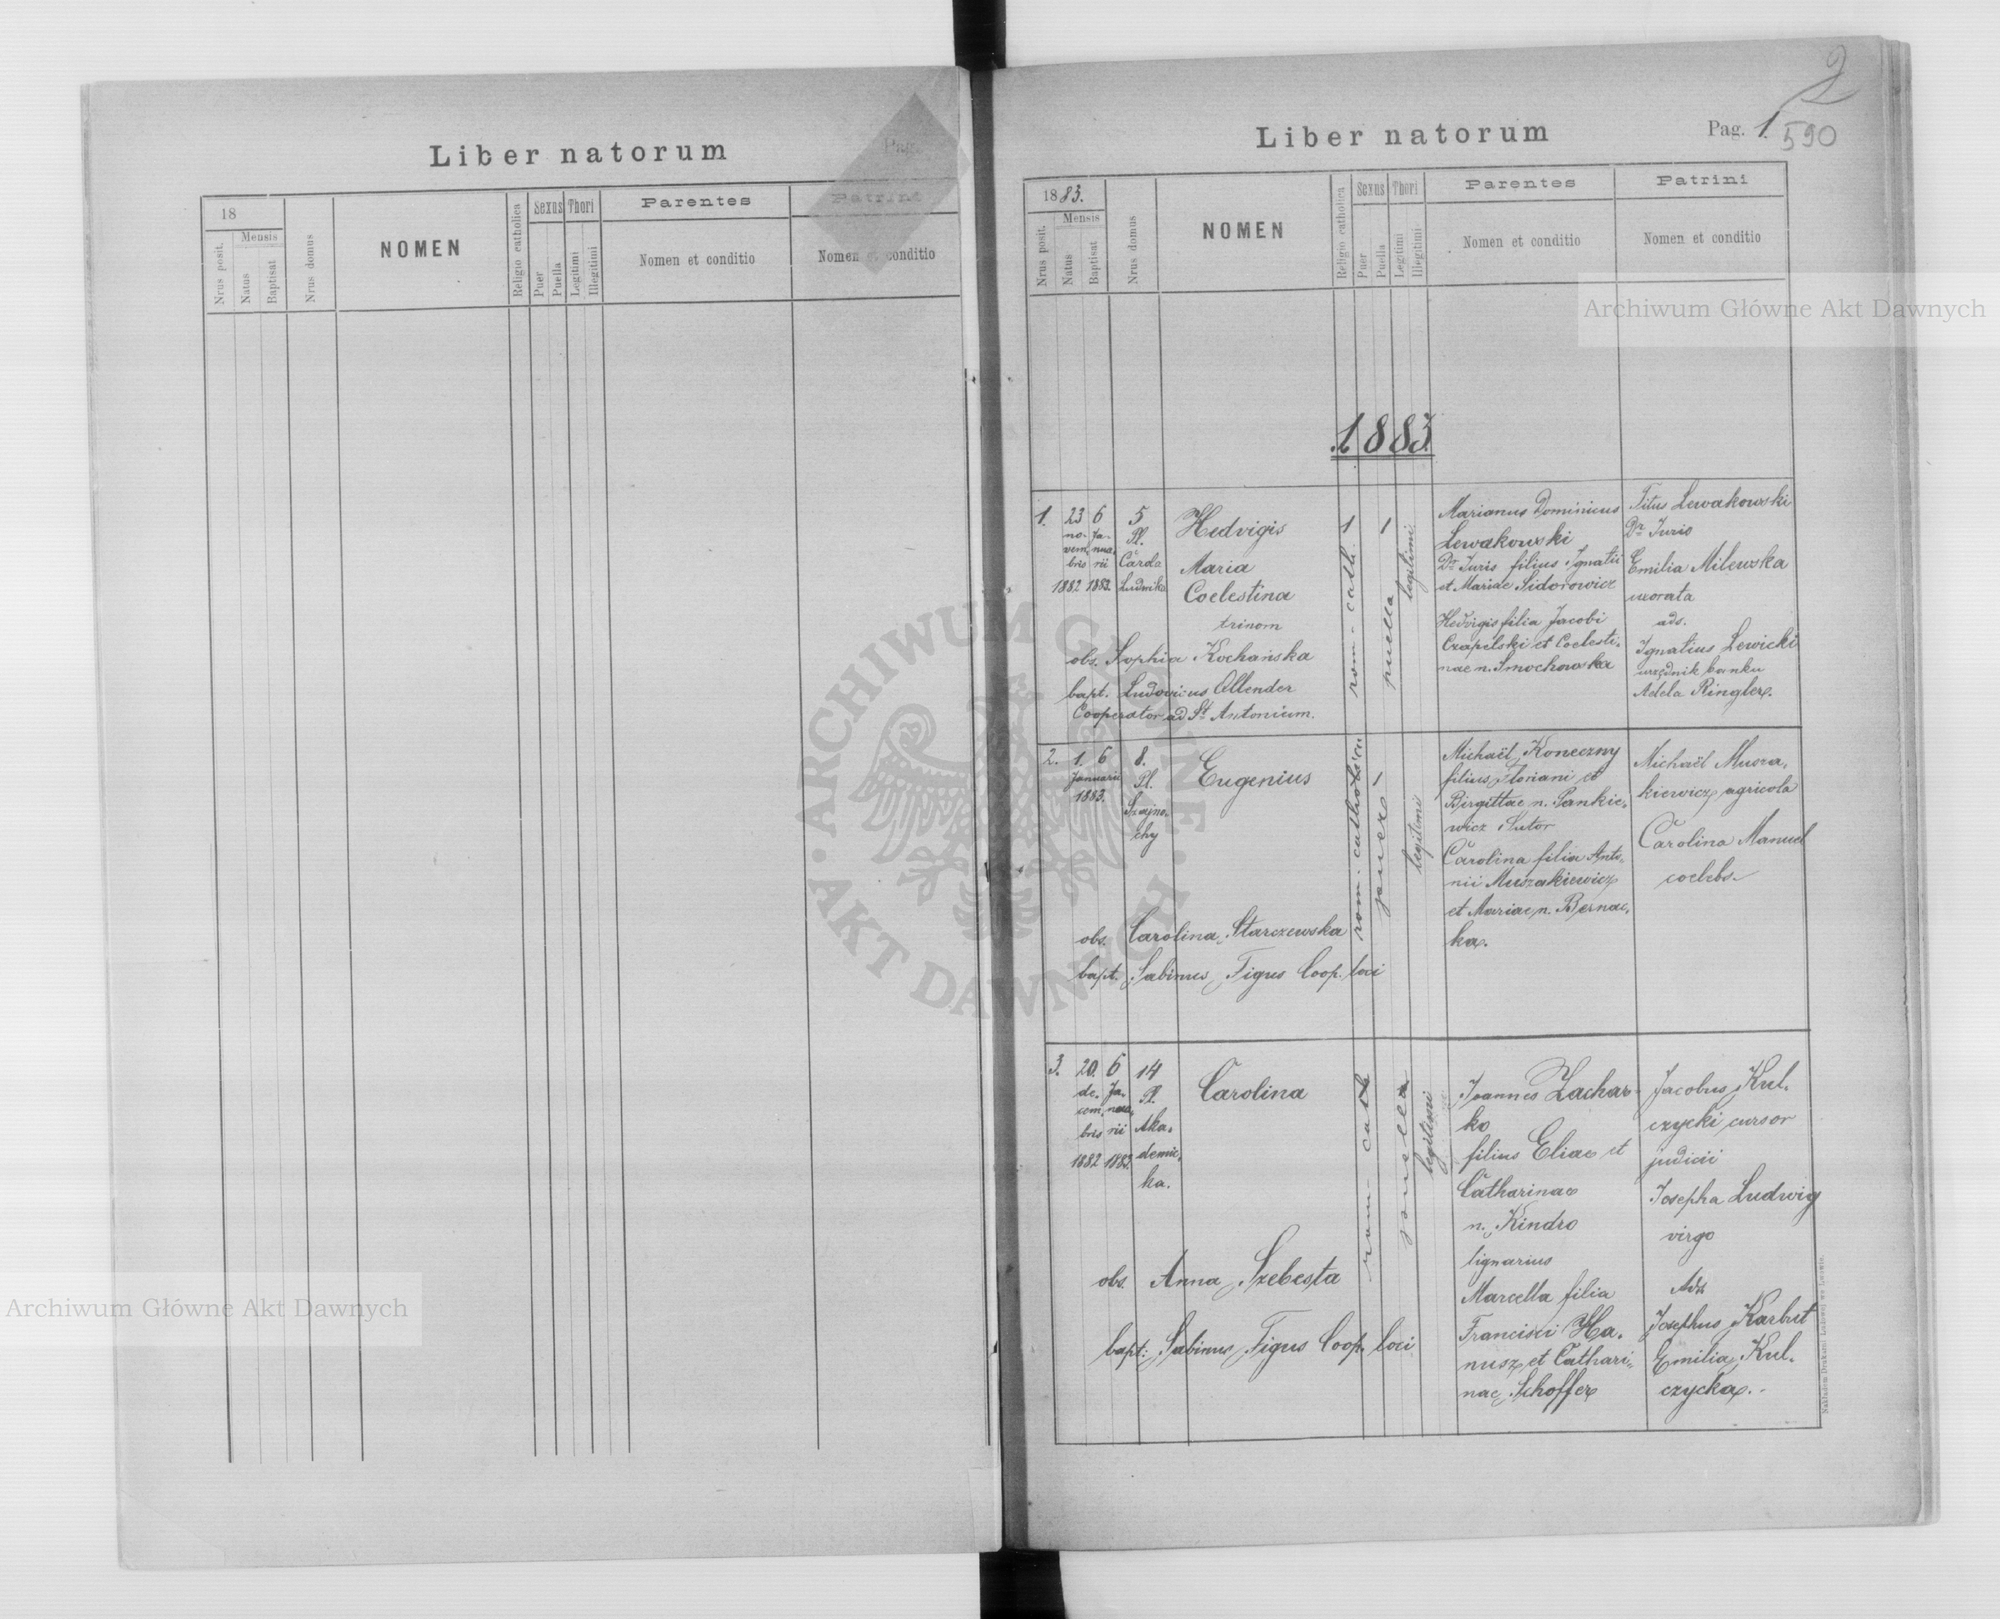 Liber natorum
Pag.
18
Mensis
Nrus posit.
Natus
Baptisat
Nrus domus
NOMEN
Religio catholica
Sexus
Puer
Puella
Thori
Legitimi
Illegitimi
Parentes
Nomen et conditio
Patrini
Nomen et conditio
Archiwum Główne Akt Dawnych
2
Liber natorum
Pag. 1.
590
1883.
Mensis
Nrus posit.
Natus
Baptisat
Nrus domus
NOMEN
Religio catholica
Sexus
Puer
Puella
Thori
Legitimi
Illegitimi
Parentes
Nomen et conditio
Patrini
Nomen et conditio
Archiwum Główne Akt Dawnych
1883.
1.
23 no-
vem-
bris
1882
6 Ja-
nua-
rii
1883.
5
Pl.
Carola
Ludwika
Hedvigis
Maria
Coelestina
trinom
obs. Sophia Kochańska
bapt. Ludovicus Ollender
Cooperator ad St. Antonium.
1
rom-cath.
1
puella
legitimi
Marianus Dominicus
Lewakowski
Dr. Juris filius Ignatii
et Mariae Sidorowicz
Hedvigis filia Jacobi
Czapelski et Coelesti-
nae n. Smochowska
Titus Lewakowski
Dr. Juris
Emilia Milewska
uxorata
ads.
Ignatius Lewicki
urzędnik banku
Adela Ringler.
2.
1. 6
Januarii
1883.
8.
Pl.
Szajno-
chy
Eugenius
obs. Carolina Starczewska
bapt. Sabinus Figus Coop. loci
rom. catholicus
puer
legitimi
Michaël Koneczny
filius Floriani et
Birgittae n. Sankie-
wicz Sutor
Carolina filia Anto-
nii Muszakiewicz
et Mariae n. Bernac-
ka.
Michaël Musza-
kiewicz agricola
Carolina Manuel
coelebs.
3.
20. de-
cem-
bris
1882
6 Ja-
nua-
rii
1883.
14
Pl.
Aka-
demic-
ka.
Carolina
obs. Anna Szebesta
bapt: Sabinus Figus Coop. loci
rom-cath
puella
legitimi
Joannes Zachar-
ko
filius Eliae et
Catharinae
n. Kindro
lignarius
Marcella filia
Francisci Ha-
nusz et Cathari-
nae Schoffer
Jacobus Kul-
czycki cursor
judicii
Josepha Ludwig
virgo
Ads
Josephus Karbut
Emilia Kul-
czycka.
Nakładem Drukarni Ludowej we Lwowie.
ARCHIWUM GŁÓWNE · AKT DAWNYCH ·